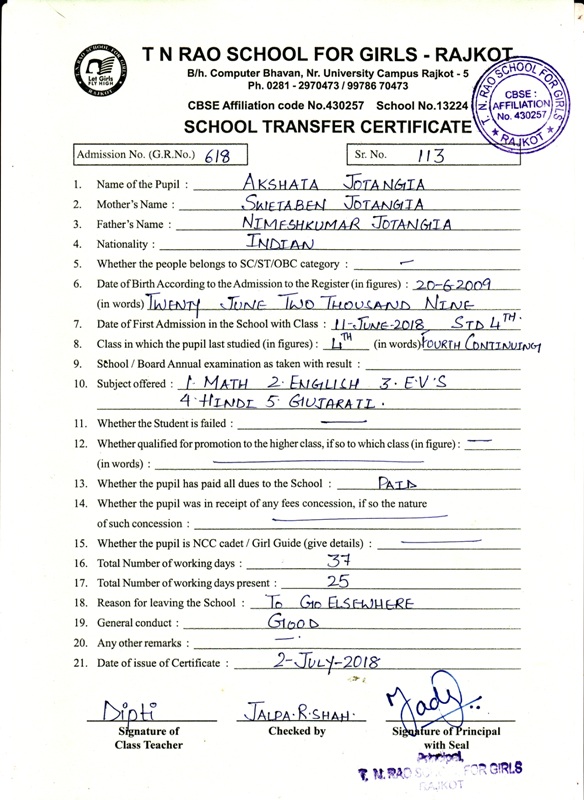 T N RAO SCHOOL FOR GIRLS - RAJKOT
B/h. Computer Bhavan, Nr. University Campus Rajkot - 5
Ph. 0281 - 2970473 / 99786 70473
CBSE Affiliation code No.430257 School No.13224
SCHOOL TRANSFER CERTIFICATE
T. N. RAO SCHOOL FOR GIRLS
CBSE :
AFFILIATION
No. 430257
RAJKOT
T N RAO SCHOOL FOR GIRLS
Let Girls
FLY HIGH
RAJKOT
Admission No. (G.R.No.) 618 Sr. No. 113
1. Name of the Pupil : AKSHATA JOTANGIA
2. Mother's Name : JOTANGIA
3. Father's Name : NIMESHKUMAR JOTANGIA
4. Nationality : INDIAN
5. Whether the people belongs to SC/ST/OBC category : —
6. Date of Birth According to the Admission to the Register (in figures) : 20-6-2009
(in words) TWENTY JUNE TWO THOUSAND NINE
7. Date of First Admission in the School with Class : 11-JUNE-2018 STD 4TH.
8. Class in which the pupil last studied (in figures) : 4TH (in words) FOURTH CONTINUING
9. School / Board Annual examination as taken with result :
10. Subject offered : 1. MATH 2. ENGLISH 3. E.V'S
4. HINDI 5. GUJARATI.
11. Whether the Student is failed : —
12. Whether qualified for promotion to the higher class, if so to which class (in figure) : —
(in words) : —
13. Whether the pupil has paid all dues to the School : PAID
14. Whether the pupil was in receipt of any fees concession, if so the nature
of such concession : —
15. Whether the pupil is NCC cadet / Girl Guide (give details) : —
16. Total Number of working days : 37
17. Total Number of working days present : 25
18. Reason for leaving the School : TO GO ELSEWHERE
19. General conduct : GOOD
20. Any other remarks : —.
21. Date of issue of Certificate : 2-JULY-2018
Dipti JALPA.R.SHAH.
Signature of Checked by Signature of Principal
Class Teacher with Seal
Principal,
T. N. RAO SCHOOL FOR GIRLS
RAJKOT